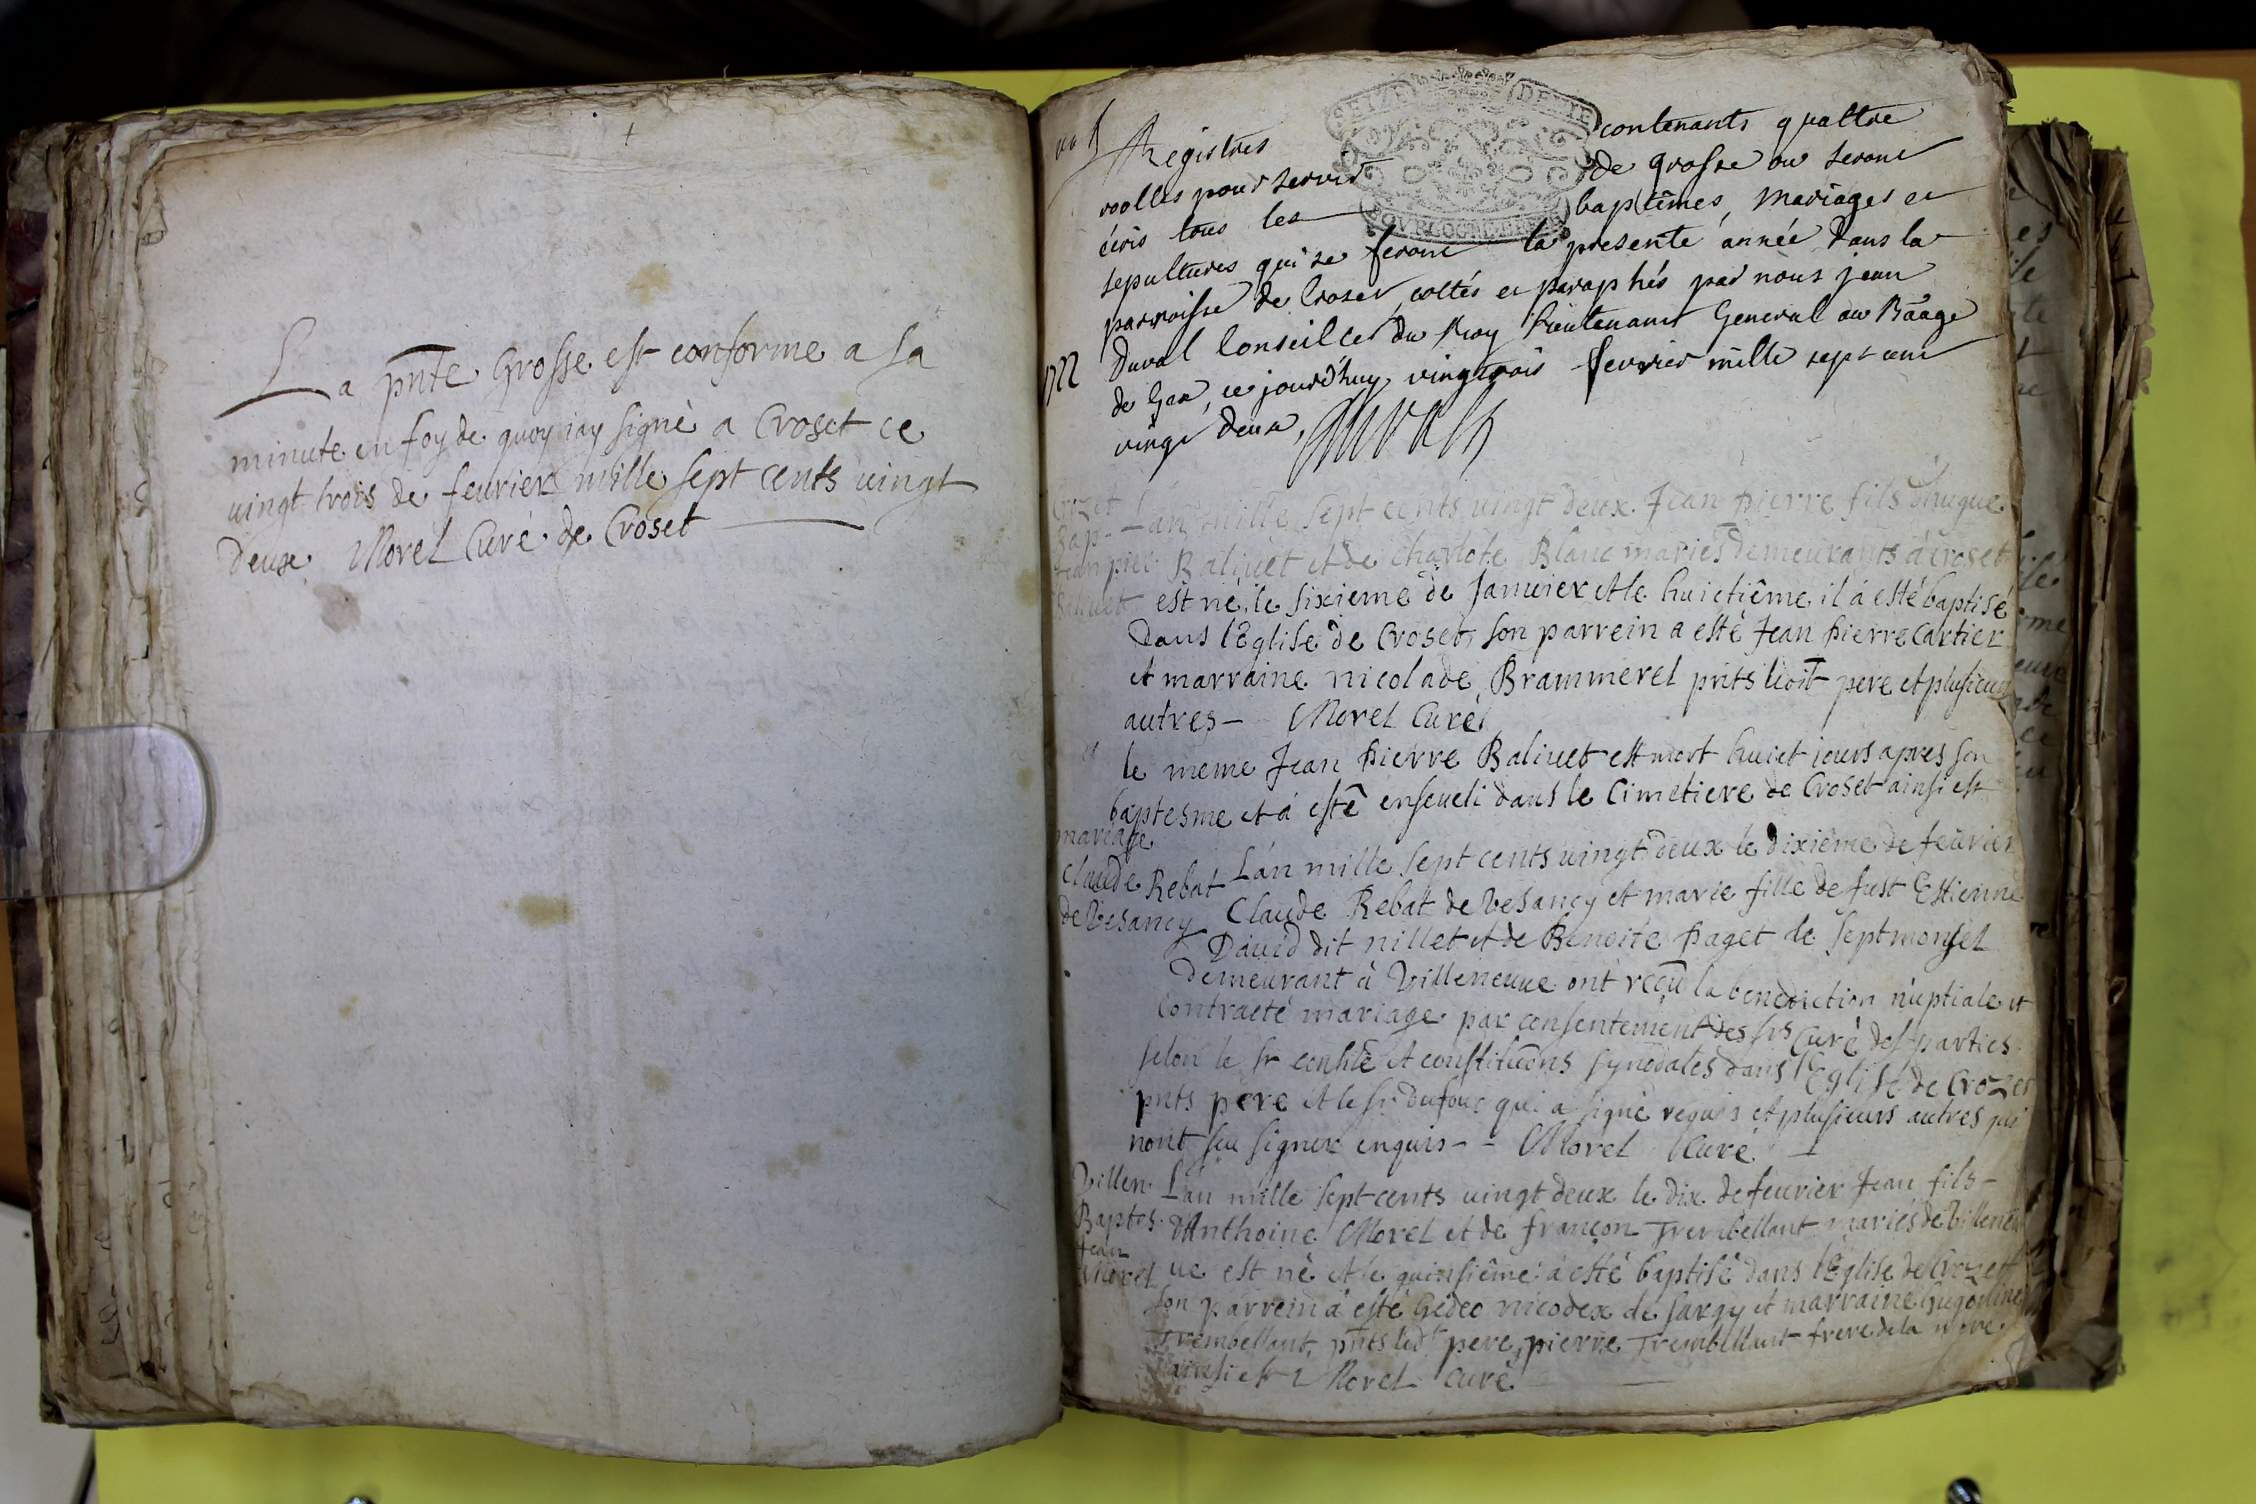 La pnte Grosse est conforme a sa
minute en foy de quoy jay signè a Croset ce
vingt trois de feurier mille sept cents uingt
deux. Morel Curé de Croset
Registres contenants quattre
roolles pour servir de grosse ou seront
écris tous les baptêmes, mariages et
sepultures qui se feront la presente année dans la
parroisse de Crozet, cottés et paraphés par nous jean
Duval Conseiller du Roy Lieutenant General au Baage
1722
de Gex, ce jourd'huy vingt trois fevrier mille sept cent
vingt deux, Duval
SEIZE DENIE
BOVRGOGNE
Crozet
Bap-
Jean pier.
Baliuet
Lan mille sept cents uingt deux Jean pierre fils d'hugue
Baliuet et de Charlote Blanc mariés demeurants à croset
est né le sixieme de Januier et le huictiême il à esté baptisé
dans l'Eglise de Croset, son parrein a esté Jean pierre Cartier
et marraine nicolade Brammerel pnts ledit pere et plusieurs
autres - Morel Curé
le meme Jean pierre Baliuet est mort huict jours apres son
baptesme et à esté enseueli dans le Cimetiere de Croset ainsi est
mariage
Claude Rebat
de Vesancy
L'an mille sept cents uingt deux le dixième de feurier
Claude Rebat de Vesancy et marie fille de fust Estienne
Dauid dit nillet et de Benoite paget de septmonsel
demeurant à Villeneuue ont reçu la benediction nuptiale et
Contracté mariage par consentement des srs Curé des parties
selon le st conlile et constituôns synodales dans l'Eglise de Crozet
pnts pere et le sr. Dufour qui a signé requis et plusieurs autres qui
nont seu signer enquis - - Morel Curé
Villen.
Baptes.
Jean
Morel
L'an mille sept cents uingt deux le dix de feurier Jean fils -
d'Anthoine Morel et de françon Trembellant mariés de Villeneu
ue est né et le quinsiême à esté baptisé dans l'Eglise de Crozet
son parrein à esté Gedeo nicodex de sargy et marraine hugonine
Trembellant, pnts ledt pere, pierre Trembellant frere de la mere
ainsi est Morel curé